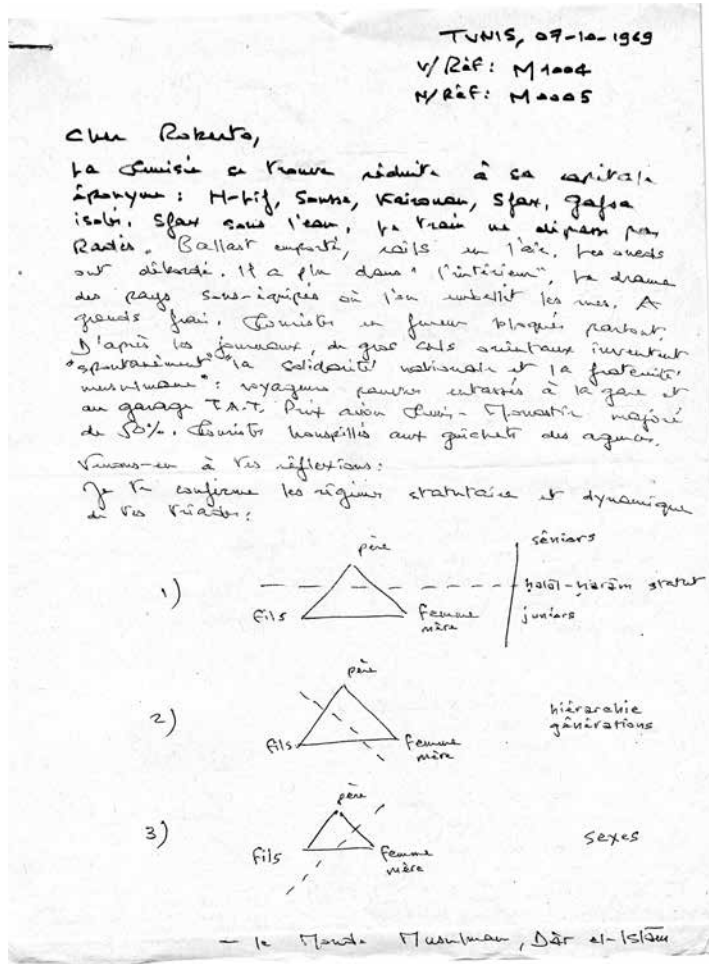 TUNIS, 07-10-1969
V/Réf: M1004
N/Réf: M0005
Cher Roberto,
La Tunisie se trouve réduite à sa capitale
éponyme : H-Lif, Sousse, Kairouan, Sfax, Gafsa
isolés. Sfax sans l'eau. Le train ne dépasse pas
Radès. Ballast emporté, rails en l'air. Les oueds
ont débordé. Il a plu dans "l'intérieur". Le drame
des pays sous-équipés où l'on embellit les rues. A
grands frais. Touristes en fureur bloqués partout.
D'après les journaux, de gros cars orientaux inventent
"spontanément" "la solidarité nationale et la fraternité
musulmane" : voyageurs pauvres entassés à la gare et
au garage T.A.T. Prix avion Tunis-Monastir majoré
de 50%. Touristes houspillés aux guichets des agences.
Venons-en à tes réflexions :
Je te confirme les régimes statutaire et dynamique
de tes triades :
1)
père
fils
femme
mère
séniors
halāl-harām statut
juniors
2)
père
fils
femme
mère
hiérarchie
générations
3)
père
fils
femme
mère
sexes
- le Monde Musulman, Dār el-Islām